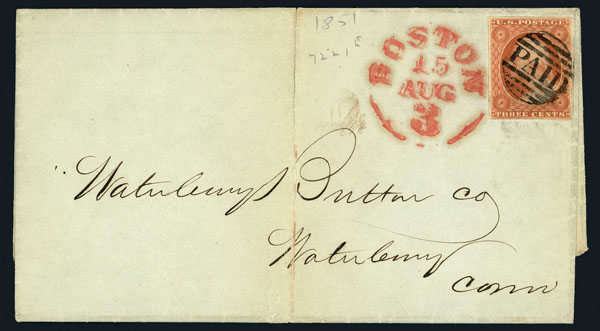 1851
7221E
U.S. POSTAGE
PAID
THREE CENTS
BOSTON
15
AUG
3
Waterbury Button Co
Waterbury
Conn